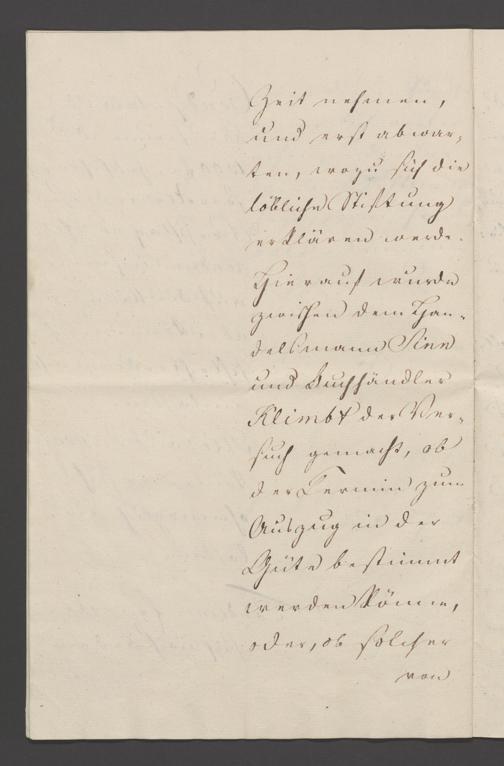 Zeit nehmen,
und erst abwar-
ten, wozu sich die
löbliche Stiftung
erklären werde.
Hierauf wurde
zwischen dem Han-
delsmann Sinn
und Buchhändler
Klimbt der Ver-
such gemacht, ob
der Termin zum
Auszug in der
Güte bestimmt
werden könne,
oder, ob solcher
von